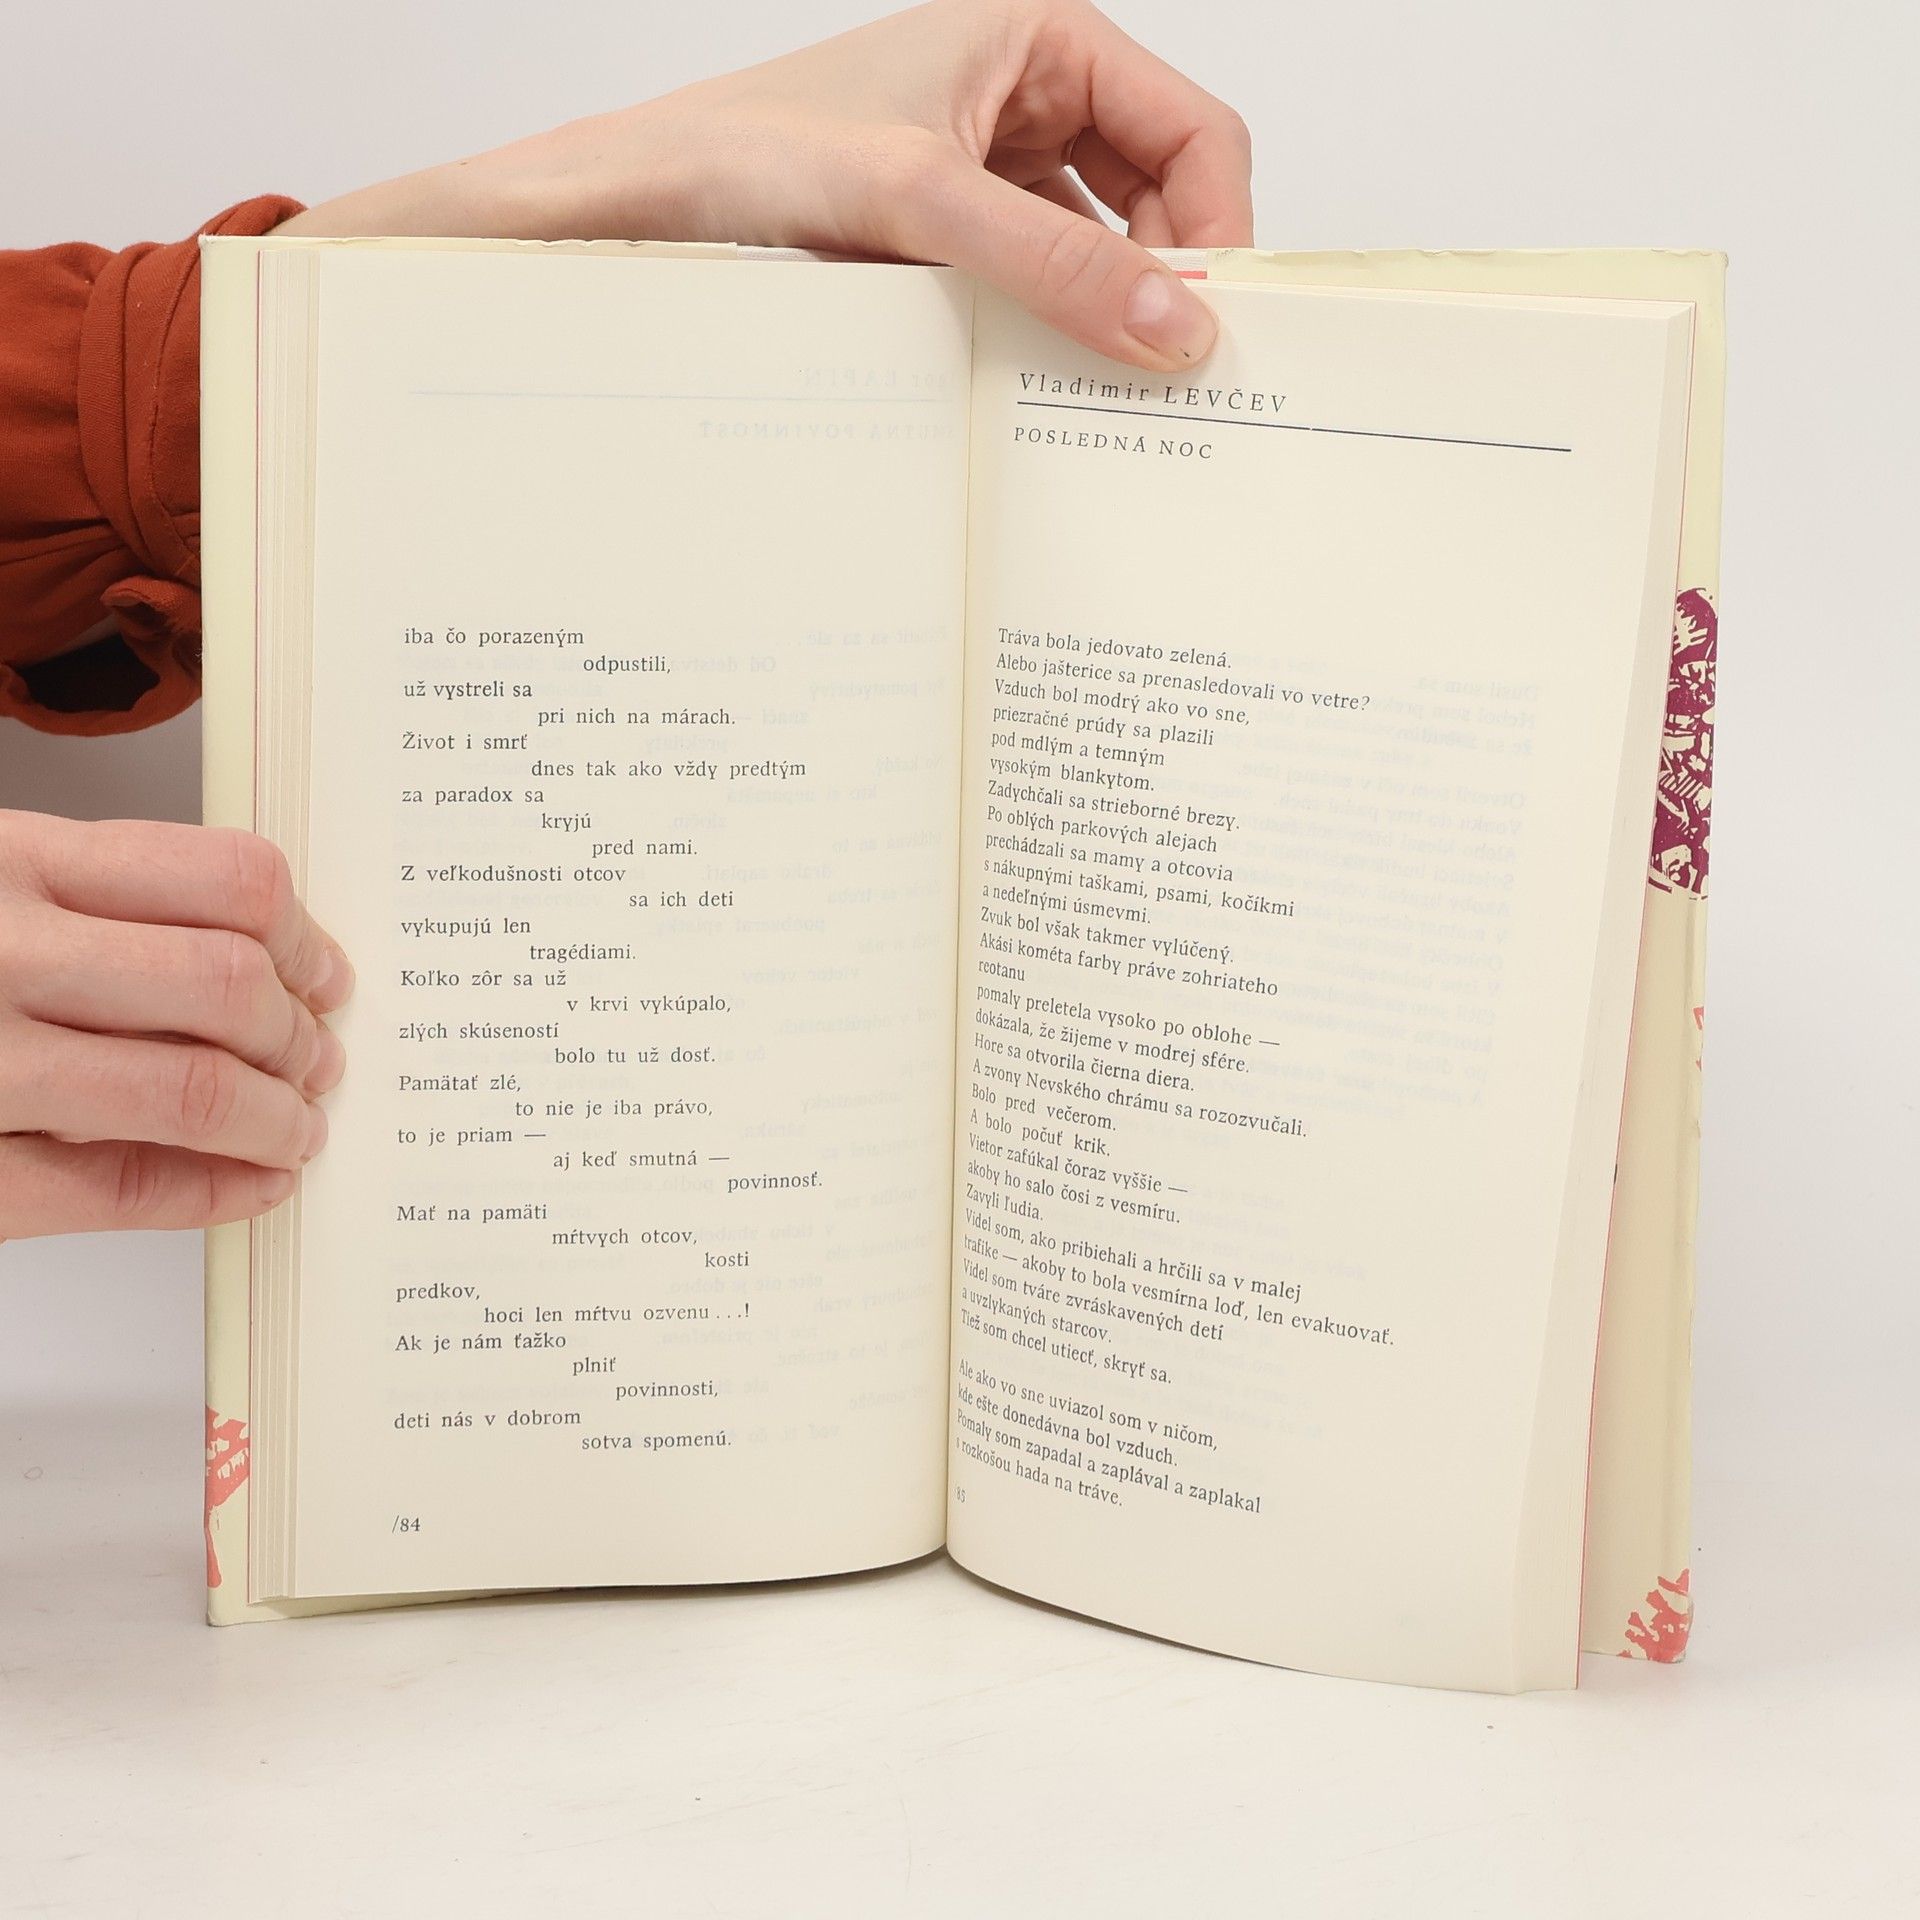 iba čo porazeným
odpustili,
už vystreli sa
pri nich na márach.
Život i smrť
dnes tak ako vždy predtým
za paradox sa
kryjú
pred nami.
Z veľkodušnosti otcov
sa ich deti
vykupujú len
tragédiami.
Koľko zôr sa už
v krvi vykúpalo,
zlých skúseností
bolo tu už dosť.
Pamätať zlé,
to nie je iba právo,
to je priam —
aj keď smutná —
povinnosť.
Mať na pamäti
mŕtvych otcov,
kosti
predkov,
hoci len mŕtvu ozvenu...!
Ak je nám ťažko
plniť
povinnosti,
deti nás v dobrom
sotva spomenú.
/84
Vladimir LEVČEV
POSLEDNÁ NOC
Tráva bola jedovato zelená.
Alebo jašterice sa prenasledovali vo vetre?
Vzduch bol modrý ako vo sne,
priezračné prúdy sa plazili
pod mdlým a temným
vysokým blankytom.
Zadychčali sa strieborné brezy.
Po oblých parkových alejach
prechádzali sa mamy a otcovia
s nákupnými taškami, psami, kočíkmi
a nedeľnými úsmevmi.
Zvuk bol však takmer vylúčený.
Akási kométa farby práve zohriateho
reotanu
pomaly preletela vysoko po oblohe —
dokázala, že žijeme v modrej sfére.
Hore sa otvorila čierna diera.
A zvony Nevského chrámu sa rozozvučali.
Bolo pred večerom.
A bolo počuť krik.
Vietor zafúkal čoraz vyššie —
akoby ho salo čosi z vesmíru.
Zavyli ľudia.
Videl som, ako pribiehali a hrčili sa v malej
trafike — akoby to bola vesmírna loď, len evakuovať.
Videl som tváre zvráskavených detí
a uvzlykaných starcov.
Tiež som chcel utiecť, skryť sa.
Ale ako vo sne uviazol som v ničom,
kde ešte donedávna bol vzduch.
Pomaly som zapadal a zaplával a zaplakal
s rozkošou hada na tráve.
/85